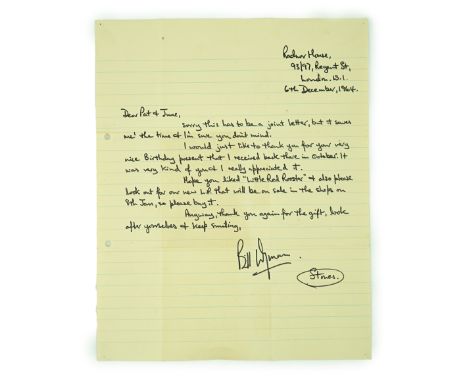 Radnor House,
93/97, Regent St,
London. W.1.
6th December, 1964.
Dear Pat & June,
Sorry this has to be a joint letter, but it saves
me the time & I'm sure you don't mind.
I would just like to thank you for your very
nice Birthday present that I received back there in October. It
was very kind of you & I really appreciated it.
Hope you liked "Little Red Rooster" & also please
look out for our new L.P. that will be on sale in the shops on
8th Jan, so please buy it.
Anyway thank you again for the gift, look
after yourselves & keep smiling,
Bill Wyman.
Stones.